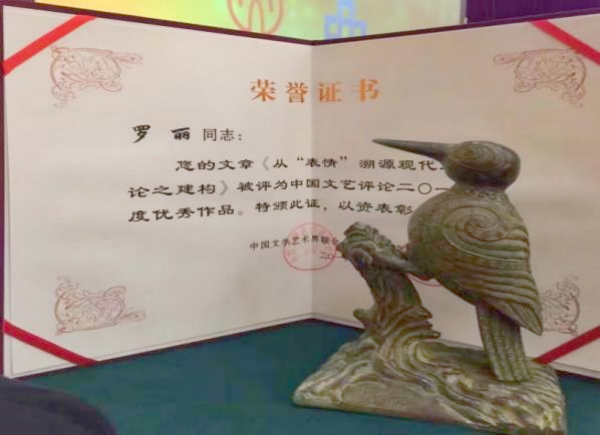 荣誉证书
罗丽同志：
您的文章《从“表情”溯源现代
论之建构》被评为中国文艺评论二〇一
度优秀作品。特颁此证，以资表彰
中国文学艺术界联合